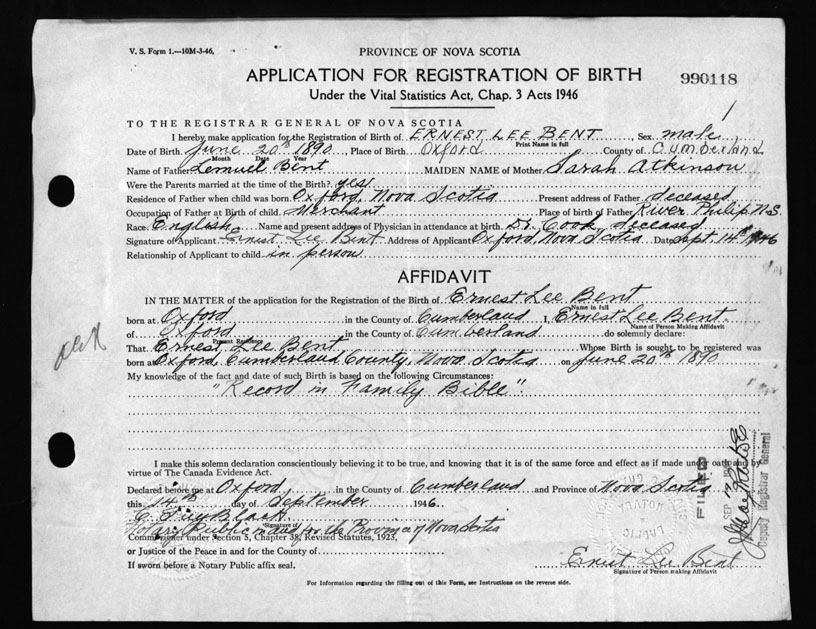 V. S. Form 1.—10M-3-46,
PROVINCE OF NOVA SCOTIA
APPLICATION FOR REGISTRATION OF BIRTH
990118
Under the Vital Statistics Act, Chap. 3 Acts 1946
1
TO THE REGISTRAR GENERAL OF NOVA SCOTIA
I hereby make application for the Registration of Birth of ERNEST LEE BENT, Sex male
Print Name in full
Date of Birth June 20th 1890, Place of Birth Oxford County of Cumberland
Month Date Year
Name of Father Lemuel Bent MAIDEN NAME of Mother Sarah Atkinson
Were the Parents married at the time of the Birth? yes
Residence of Father when child was born Oxford, Nova Scotia Present address of Father deceased
Occupation of Father at Birth of child Merchant Place of birth of Father River Philip N.S.
Race English Name and present address of Physician in attendance at birth Dr. Cook, deceased
Signature of Applicant Ernest Lee Bent Address of Applicant Oxford, Nova Scotia Date Sept. 14th 1946
Relationship of Applicant to child in person
AFFIDAVIT
IN THE MATTER of the application for the Registration of the Birth of Ernest Lee Bent
Name in full
born at Oxford in the County of Cumberland I, Ernest Lee Bent
Name of Person Making Affidavit
of Oxford in the County of Cumberland do solemnly declare:
Present Residence
That Ernest Lee Bent Whose Birth is sought to be registered was
born at Oxford, Cumberland County, Nova Scotia on June 20th 1890
My knowledge of the fact and date of such Birth is based on the following Circumstances:
"Record in Family Bible".
I make this solemn declaration conscientiously believing it to be true, and knowing that it is of the same force and effect as if made under oath and by
virtue of The Canada Evidence Act.
Declared before me at Oxford, in the County of Cumberland and Province of Nova Scotia
this 14th day of September 1946.
Signature of
Notary Public in and for the Province of Nova Scotia
Commissioner under Section 5, Chapter 38, Revised Statutes, 1923,
or Justice of the Peace in and for the County of
If sworn before a Notary Public affix seal.
Ernest Lee Bent
Signature of Person making Affidavit
For Information regarding the filling out of this Form, see Instructions on the reverse side.
FILED
SEP
Deputy Registrar General